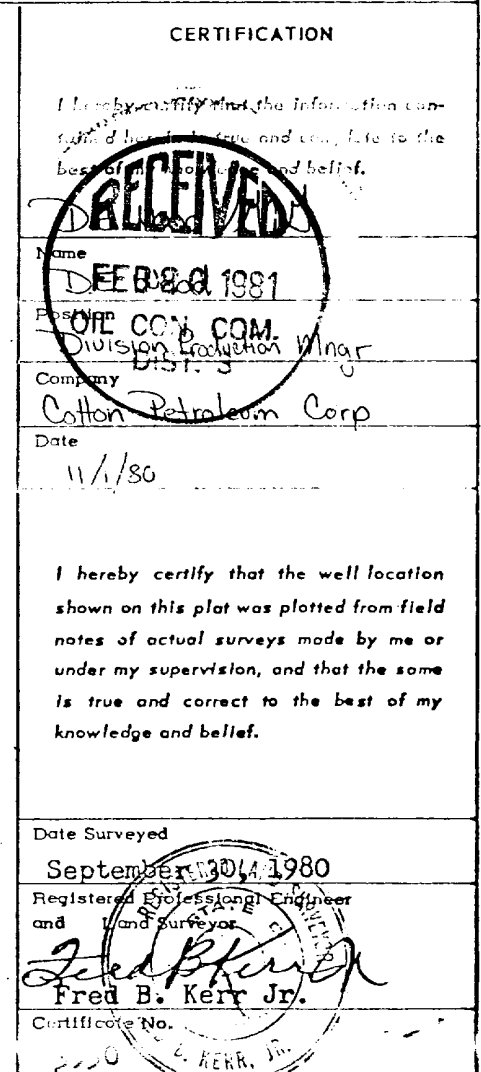 CERTIFICATION
I hereby certify that the information con-
tained herein is true and complete to the
best of my knowledge and belief.
RECEIVED
Name
FEB 1981
Position
OIL CON. COM.
Division Production Mngr
DIST. 3
Company
Cotton Petroleum Corp
Date
11/1/80
I hereby certify that the well location
shown on this plat was plotted from field
notes of actual surveys made by me or
under my supervision, and that the same
is true and correct to the best of my
knowledge and belief.
Date Surveyed
September 30, 1980
Registered Professional Engineer
and Land Surveyor
Fred B. Kerr Jr.
Fred B. Kerr Jr.
Certificate No.
KERR, JR.